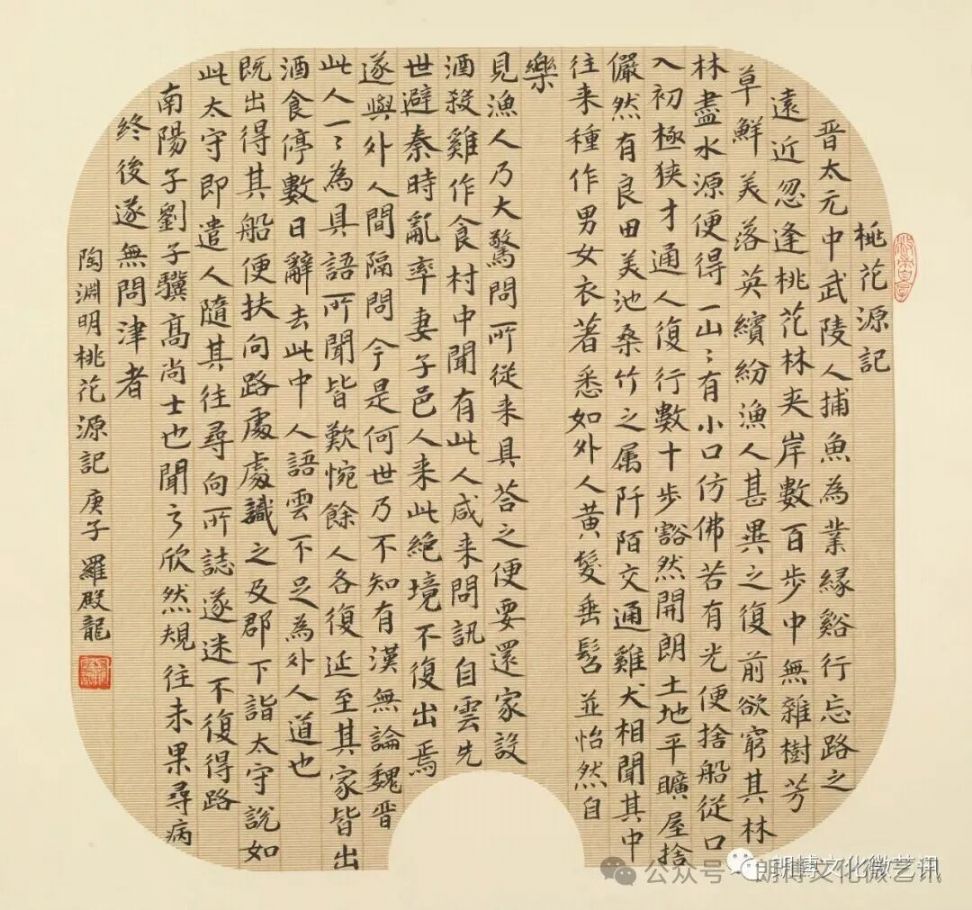 桃花源記
晋太元中武陵人捕魚為業緣谿行忘路之
遠近忽逢桃花林夹岸數百步中無雜樹芳
草鮮美落英繽紛漁人甚異之復前欲窮其林
林盡水源便得一山〻有小口仿佛若有光便捨船從口
入初極狹才通人復行數十步豁然開朗土地平曠屋捨
儼然有良田美池桑竹之属阡陌交通雞犬相聞其中
往来種作男女衣著悉如外人黄髮垂髫並怡然自
樂
見漁人乃大驚問所從来具荅之便要還家設
酒殺雞作食村中聞有此人咸来問訊自雲先
世避秦時亂率妻子邑人来此絶境不復出焉
遂與外人間隔問今是何世乃不知有漢無論魏晋
此人一〻為具語所聞皆歎惋餘人各復延至其家皆出
酒食停數日辭去此中人語雲不足為外人道也
既出得其船便扶向路處處識之及郡下詣太守說如
此太守即遣人隨其往尋向所誌遂迷不復得路
南陽子劉子驥高尚士也聞之欣然規往未果尋病
終後遂無問津者
陶淵明桃花源記 庚子 羅殿龍
公众号·朗博文化微艺讯
朗博文化微艺讯